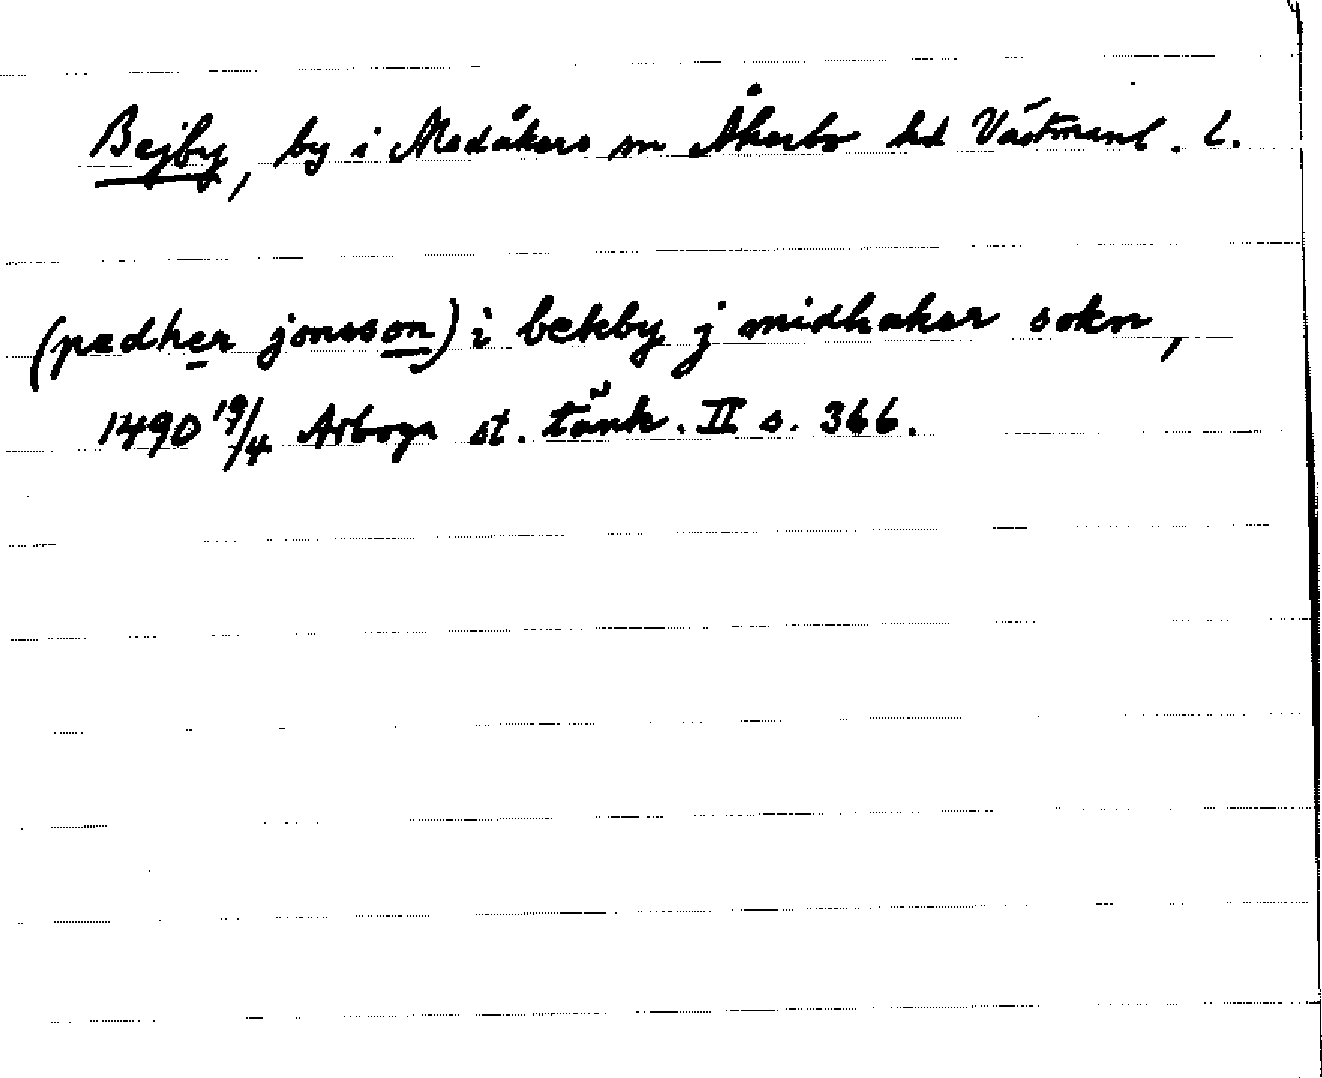 Bejby, by i Medåkers sn Åkerbo hd Västmanl. l.
(pædher jonsson) i bekby j midhaker sokn,
1490 19/4 Arboga st. tänk. II s. 366.